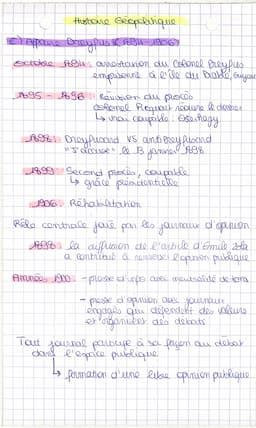 Histoire Géopolitique
c) Affaire Dreyfus (1894-1906)
octobre 1894 : arrestation du Colonel Dreyfus
emprisonné à l'île du Diable, Guyane
1895 - 1896 : Révision du procès
Colonel Picquart réouvre le dossier
↳ vrai coupable : Esterhazy
1898 : Dreyfusard VS antidreyfusard
"J'accuse" le 13 janvier 1898
1899 : Second procès, coupable
↳ grâce présidentielle
1906 : Réhabilitation
Rôle centrale joué par les journaux d'opinion
1898 : la diffusion de l'article d'Emile Zola
a contribué à renverser l'opinion publique
Années 1900 : - presse d'info avec neutralité de tons
- presse d'opinion avec journaux
engagés qui défendent des valeurs
et organisent des débats
Tout journal participe à sa façon au débat
dans l'espace publique
↳ formation d'une libre opinion publique